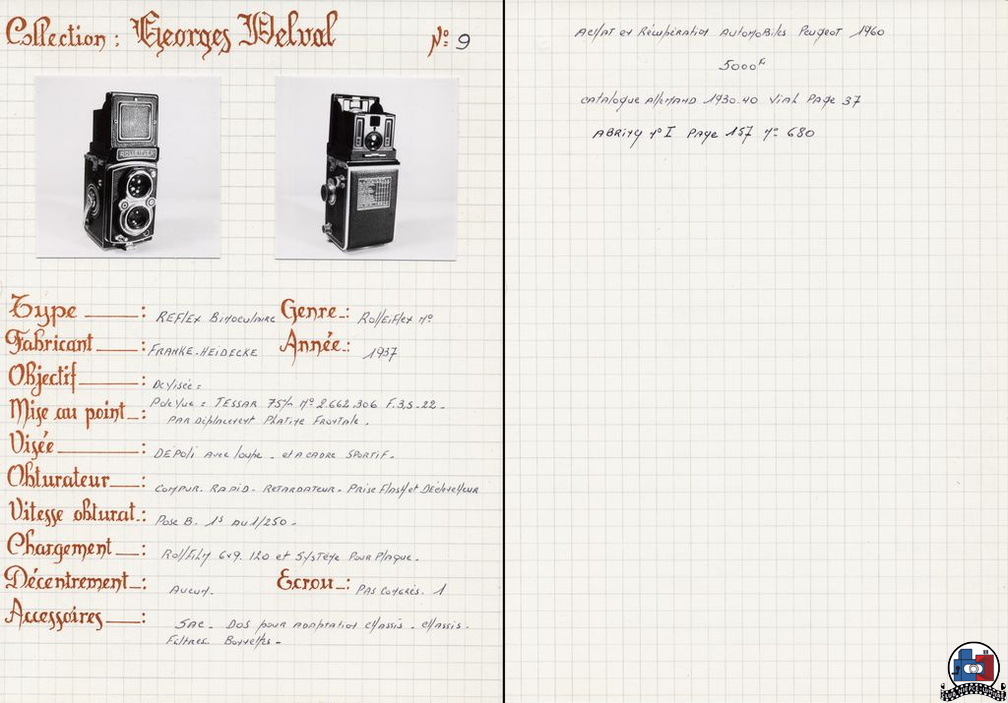 Collection : Georges Delval Nº 9
Type : REFLEX BINOCULAIRE Genre : Rolleiflex nº
Fabricant : FRANKE-HEIDECKE Année : 1937
Objectif : De Visée =
P de Vue = TESSAR 75% Nº 2.662.306 F.3,5-22-
Mise au point : PAR Déplacement Platine Frontale.
Visée : DEPOLI Avec loupe - et A CADRE SPORTIF-
Obturateur : COMPUR-RAPID- RETARDATEUR- Prise Flash et Déclencheur
Vitesse obturat : Pose B. 1S AU 1/250-
Chargement : Rollfilm 6x9. 120 et Système Pour Plaque.
Décentrement : Aucun. Ecrou : PAS CONGRÈS. 1
Accessoires : SAC- DOS pour adaptation chassis - chassis-
Filtres Bonnettes-
Achat et Récupération Automobiles Peugeot 1960
5000F
Catalogue Allemand 1930.40 Vial Page 37
ABRING nº I PAGE 157 Nº 680